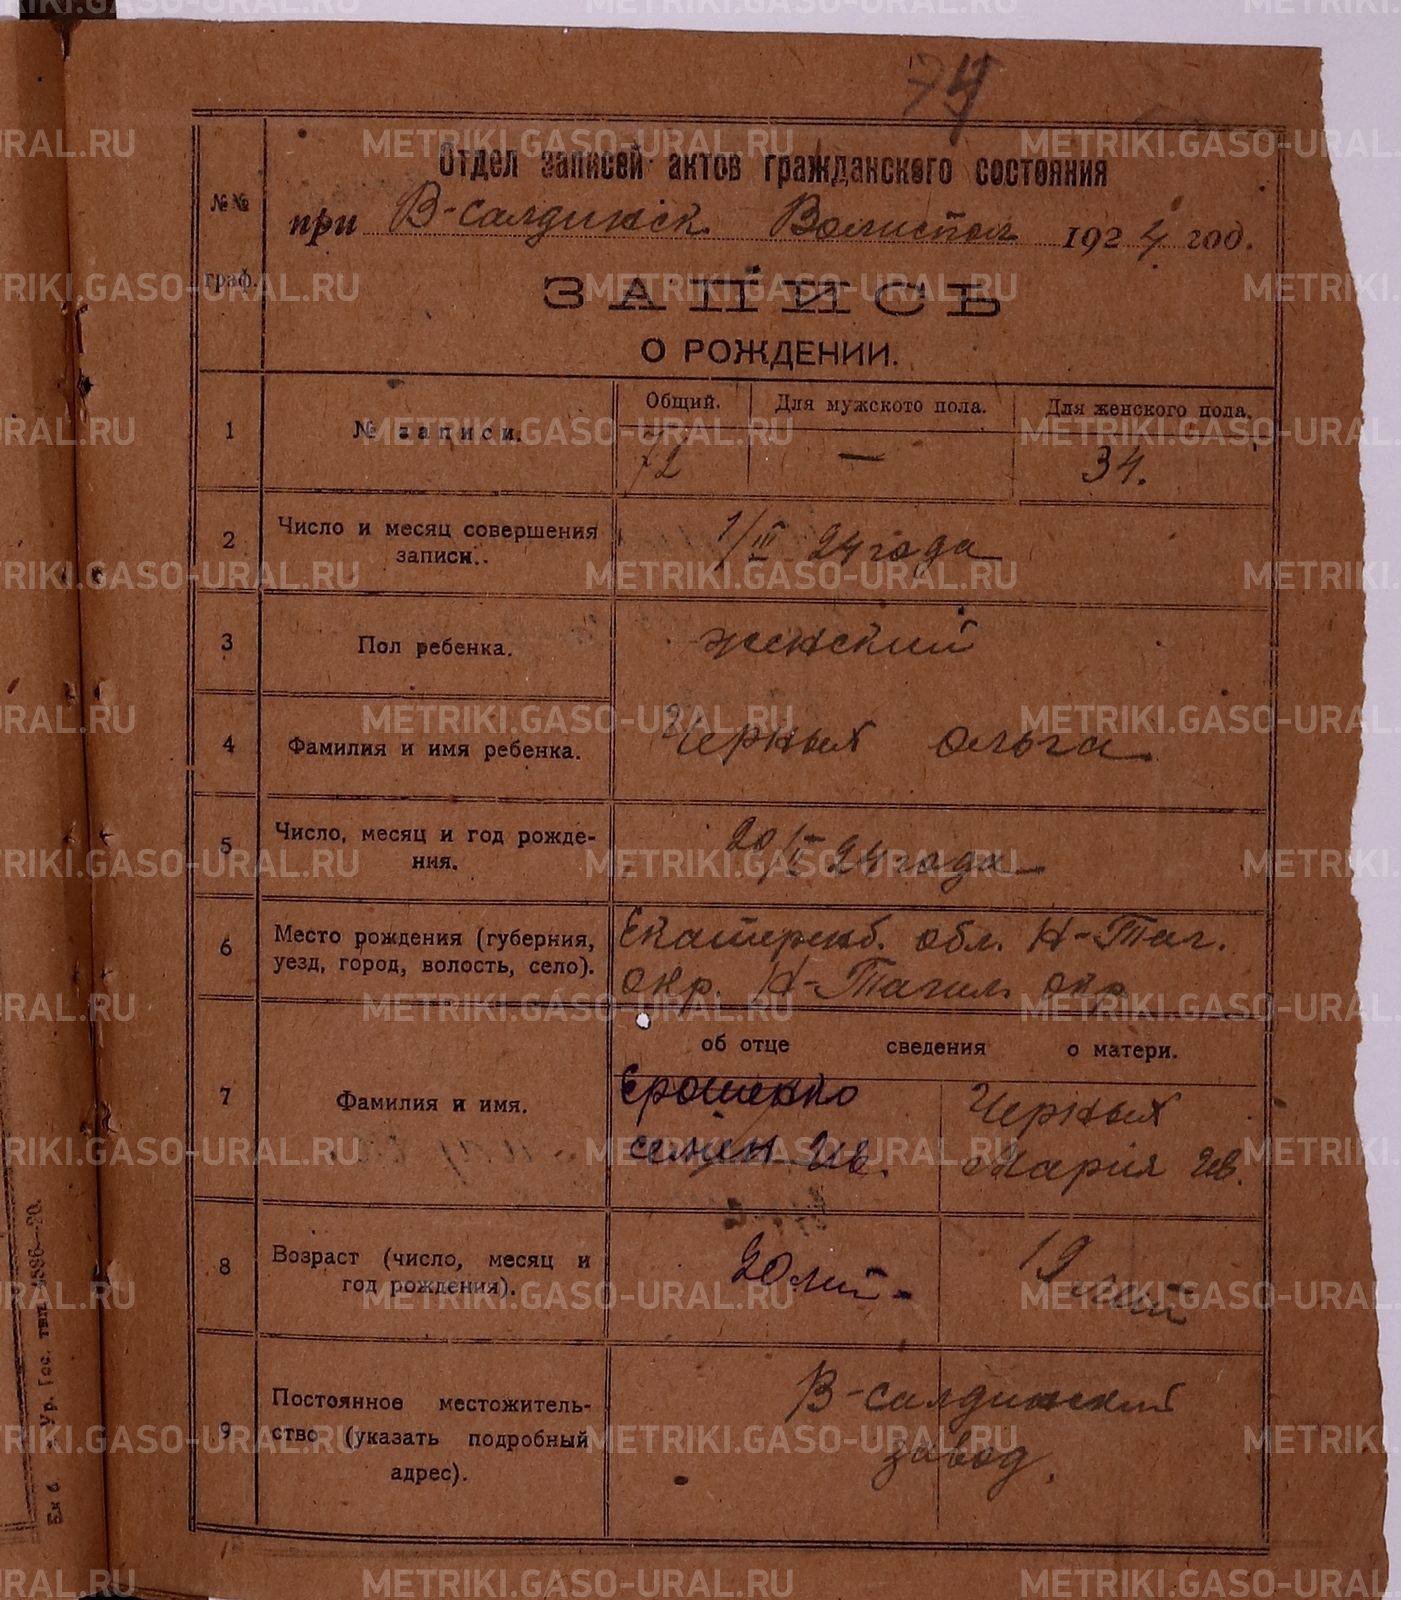 74
Отдел записей актов гражданского состояния
при В-салдинск. Волиспол 1924 год.
№№ граф.
ЗАПИСЬ
О РОЖДЕНИИ.
1 № записи. Общий. Для мужского пола. Для женского пола.
72 — 34.
2 Число и месяц совершения записи. 1/III 24 года
3 Пол ребенка. женский
4 Фамилия и имя ребенка. Черных Ольга
5 Число, месяц и год рождения. 20/II 24 года
6 Место рождения (губерния, Екатеренб. обл. Н-Таг.
уезд, город, волость, село). окр. Н-Тагил. окр
об отце сведения о матери.
7 Фамилия и имя. Ерошенко Черных
семен Ив. Мария Ив.
8 Возраст (число, месяц и 20 лит. 19 лит
год рождения).
9 Постоянное местожитель- В-салдинский
ство (указать подробный завод.
адрес).
Ек б Ур. Гос. тип
METRIKI.GASO-URAL.RU